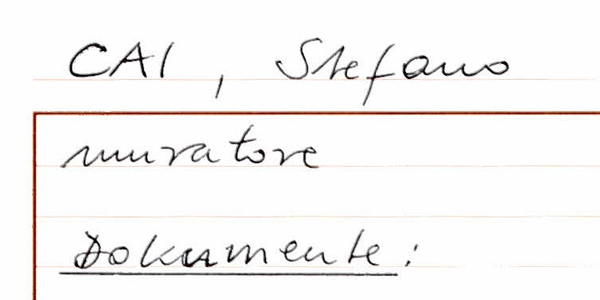 CAI, Stefano
muratore
Dokumente: